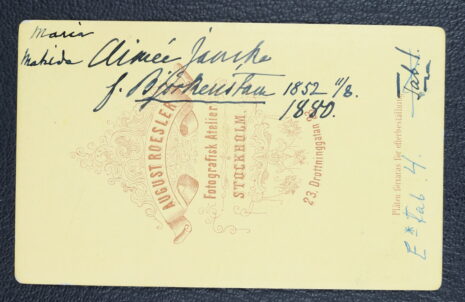 Maria
Matilda Aimée
f. Björkenstam 1852 11/8.
1880.
Tab. 1.
E* tab. 4.
AUGUST ROESLER
Fotografisk Atelier
STOCKHOLM.
23. Drottninggatan
Plåten förvaras för efterbeställning